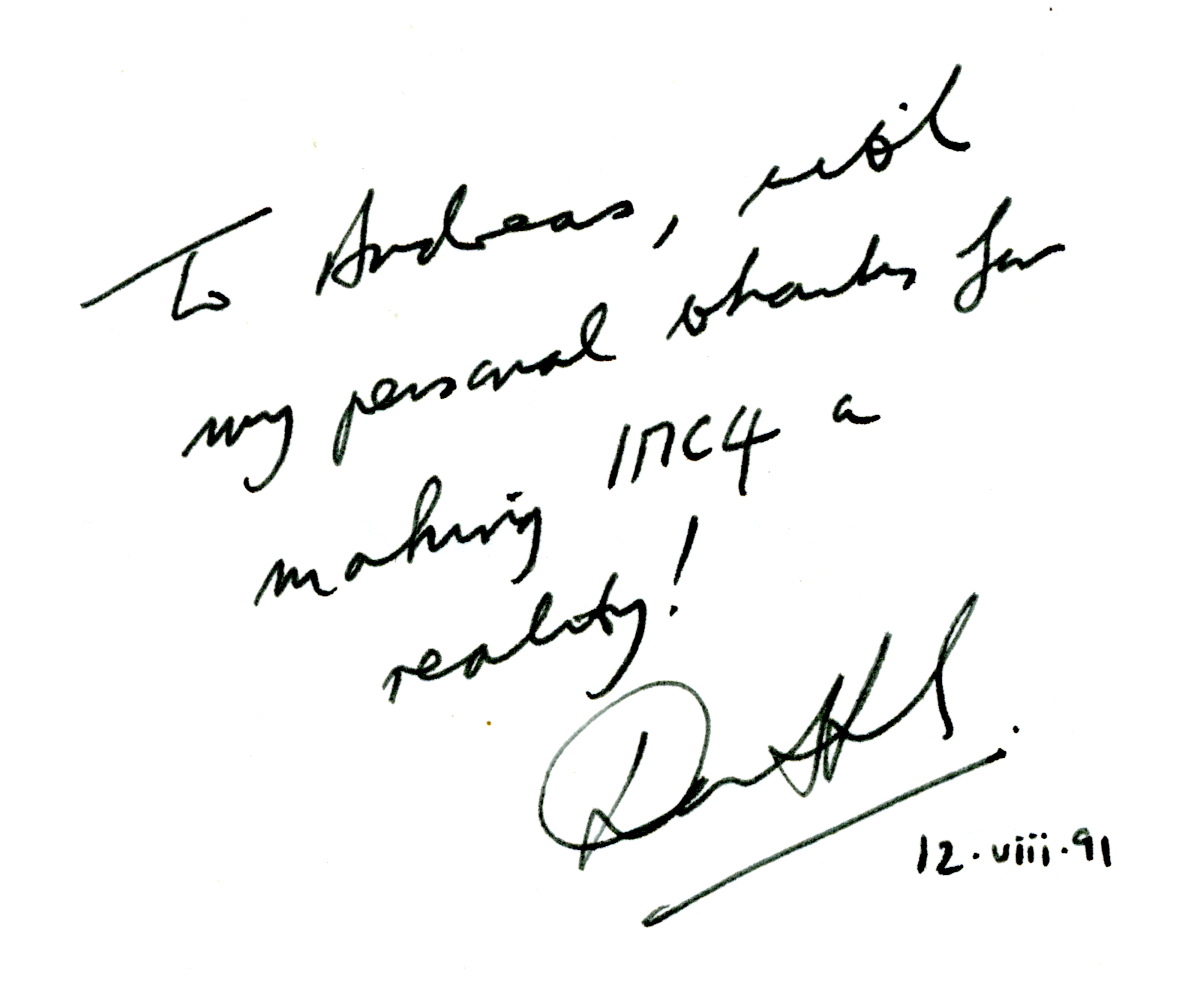 To Andreas, with
my personal thanks for
making IMC4 a
reality!
12.viii.91